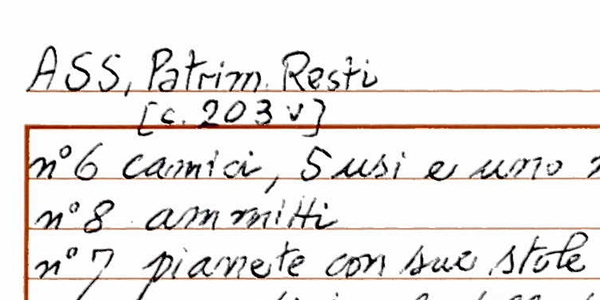 ASS, Patrim. Resti
[c. 203 v]
n° 6 camici, 5 usi e uno
n° 8 ammitti
n° 7 pianete con sue stole